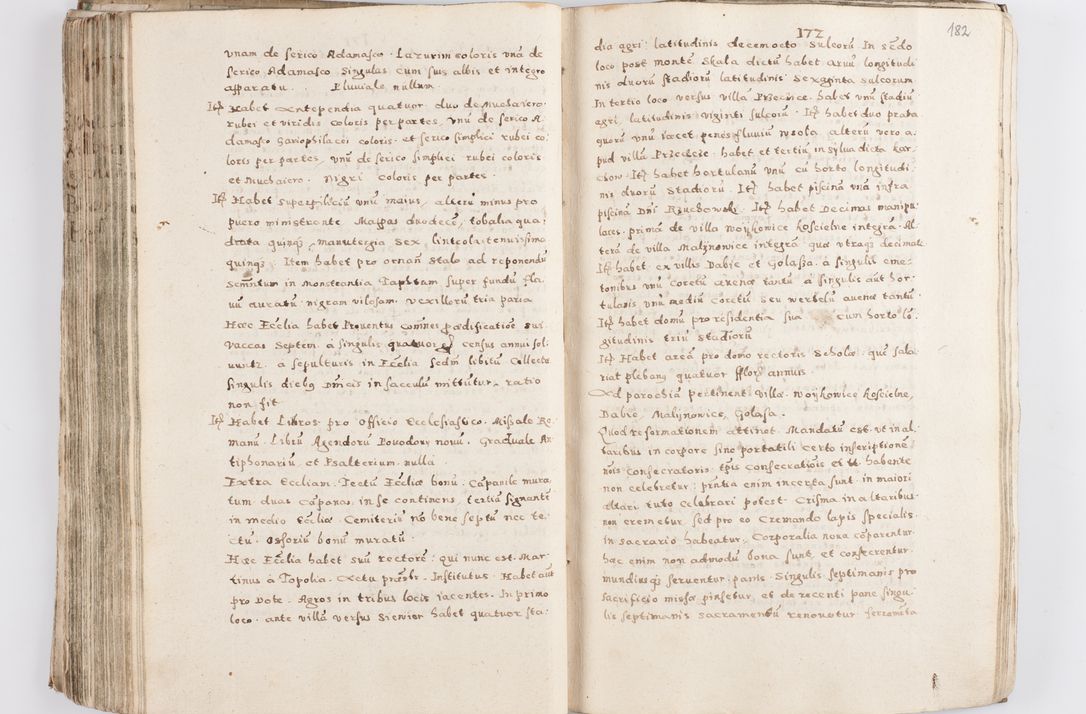 vnam de serico Adamasco. Lazurim coloris vnā de
serico Adamasco. Singulas cum suis albis et integro
apparatu. Pluuiale nullum.
Itē Habet Antependia quatuor duo de Muchaiero.
rubei et viridis coloris per partes, vnū de serico A
damasco Gariophilacei coloris. et serico simplici rubei co:
loris per partes, vnū de serico simplici rubei coloris
et Muchaiero. Nigri coloris per partes.
Itē Habet superpiliciū vnū maius, alterū minus pro
puero ministrante. Mappas duodecē, tobalia qua
drata quinq3, manutergia sex, linteola tenuissima
quinq3. Item habet pro ornatu stalo ad reponendū
Semnitum in Monstrantia Tapetam super fundū fla
uū auratū. nigram vilosam. vexillorū tria paria
Haec Eccīlia habet Prouentus omnes praedificatiōe sui.
Vaccas Septem. à singulis quatuor census annui sol:
uuntr. à sepulturis in Ecclīa sedm libitū Collecta
singulis diebq Dnīcis in sacculū mittitur, ratio
non fit
Itē Habet Libros pro Officio Ecclesiastico. Missale Ro
manū. Librū Agendorū Pouodowy nouū. Graduale An
tiphonariū, et Psalterium. nulla
Extra Eccliam. Tectū Ecclīe bonū. Cāpanile mura
tum duas Cāpanas in se continens, tertiā signantē
in medio Ecclīe. Cemiteriū nō bene septū nec te:
ctū. Osforiū bonū muratū.
Haec Ecclīa habet suū rectorē. qui nunc est. Mar
tinus à Topolia. Actu praesbr. Institutus. Habet aut
pro Dote. Agros in tribus locis iacentes. In primo
loco. ante villā versus Siewior habet quatuor sta:
172
182
dia agri: latitudinis decemocto sulcorū. In sedo
loco post montē Skala dictū habet aruū longitudi
nis duorū stadiorū latitudinis sexaginta sulcorum.
In tertio loco versus villā Przecice. habet vnū stadiū
agri latitudinis viginti sulcorū. Itē habet duo prata
quorū vnū iacet penes fluuiū Ysola alterū vero a:
pud villā Przecice. habet et tertiū in sylua dicta Kar
chow. Itē habet hortulanū vnū cū horto longitudi:
nis duorū stadiorū. Itē habet piscinā vnā infra
piscinā Dnī Rzuchowski. Itē habet Decimas manipu
lares. primā de villa Woÿkowice Koscielne integrā. Al
terā de villa Malinowice integrā quo vtraq3 decimale
Itē habet ex villis Dabie et Golassa. à singulis cme:
tonibus vnū Coretū auenae tantū à singulis aut hor:
tulanis vnū mediū Coretū seu wertelū auenae tantū.
Itē habet domū pro residentia sua cum horto lō:
gitudinis triū stadiorū
Itē Habet areā pro domo rectoris Scholae. quē sala
riat plebanq quatuor fflor annuis.
Ad parochiā pertinent villae. Woÿkowice Koscielne,
Dabie, Malÿnowice, Golasa.
Quod reformationem attinet. Mandatū est. vt in al:
taribus in corpore sine portatili certo inscriptionē
nōis consecratoris. tpīs consecratiōis et tt. habente
non celebretur: prntia enim incerta sunt. in maiori
altari tuto celebrari potest. Crisma in altaribus
non cremetur. sed pro eo Cremando lapis specialis.
in sacrario habeatur, Corporalia noua cōparentur.
haec enim non admodū bona sunt, et conserventur.
mundiusq3 seruentur. panis. Singulis septimanis pro
sacrificio missae pinsetur, et de recenti pane singu:
lis septimanis sacramentū renouetur ferramēta